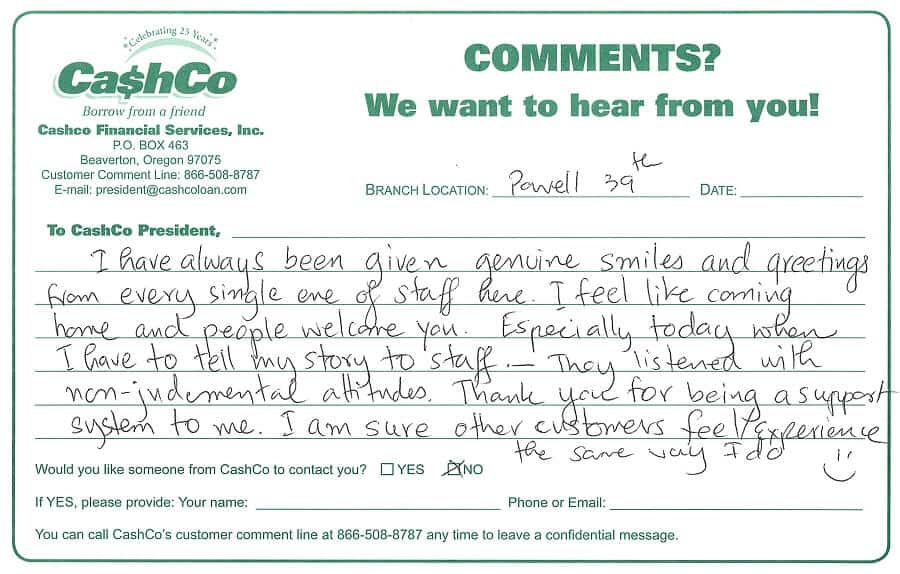 Celebrating 25 Years
Ca$hCo
Borrow from a friend
Cashco Financial Services, Inc.
P.O. BOX 463
Beaverton, Oregon 97075
Customer Comment Line: 866-508-8787
E-mail: president@cashcoloan.com
COMMENTS?
We want to hear from you!
BRANCH LOCATION: Powell 39th DATE:
To CashCo President,
I have always been given genuine smiles and greetings
from every single one of staff here. I feel like coming
home and people welcome you. Especially today when
I have to tell my story to staff. — They listened with
non-judemental attitudes. Thank you for being a support
system to me. I am sure other customers feel/experience
the same way I do
Would you like someone from CashCo to contact you? YES NO
If YES, please provide: Your name: Phone or Email:
You can call CashCo's customer comment line at 866-508-8787 any time to leave a confidential message.